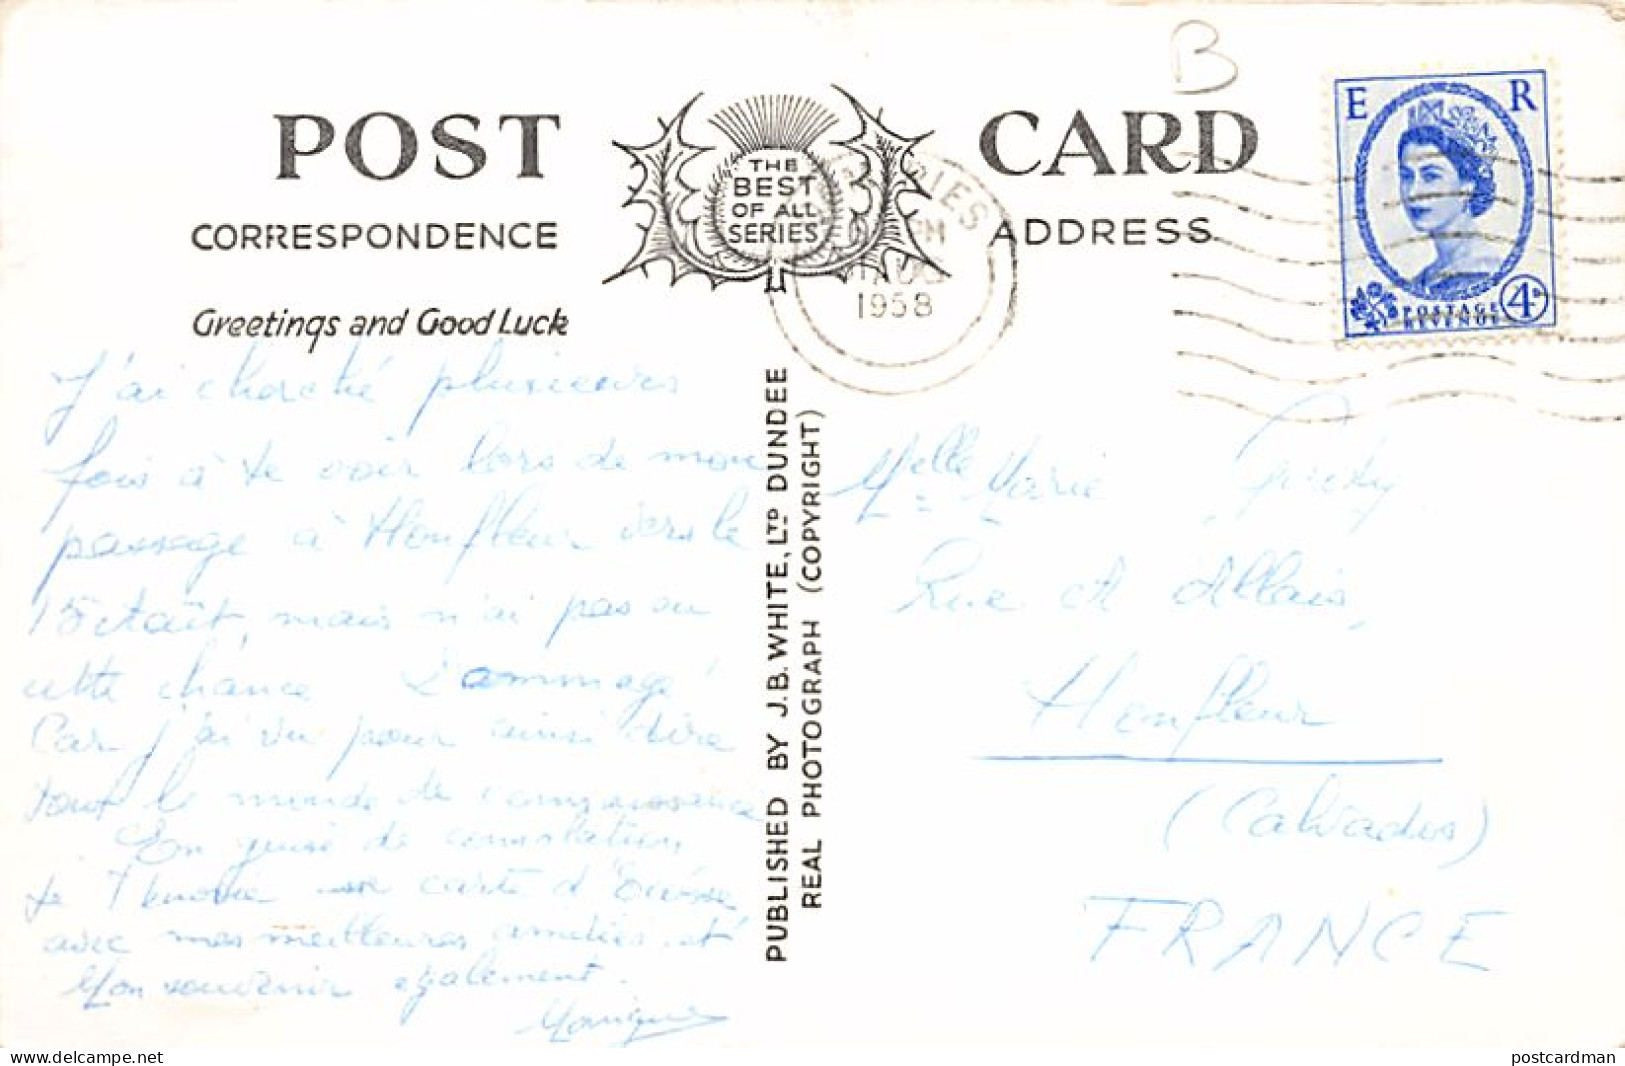 B
POST CARD
THE
BEST
OF ALL
SERIES
CORRESPONDENCE
ADDRESS
Greetings and Good Luck
E R
POSTAGE
REVENUE
4D
PM
1958
PUBLISHED BY J.B. WHITE, LTD DUNDEE
REAL PHOTOGRAPH (COPYRIGHT)
J'ai cherché plusieurs
fois à te voir lors de mon
passage à Honfleur vers le
15 Août, mais n'ai pas eu
cette chance Dommage!
Car j'ai vu pour ainsi dire
tout le monde de connaissance
En guise de consolation
je t'envoie carte d'Écosse
avec mes meilleures amitiés et
Mon souvenir également.
Monique
Melle Marie
Rue Allais,
Honfleur
(Calvados)
FRANCE
delcampe.net
postcardman